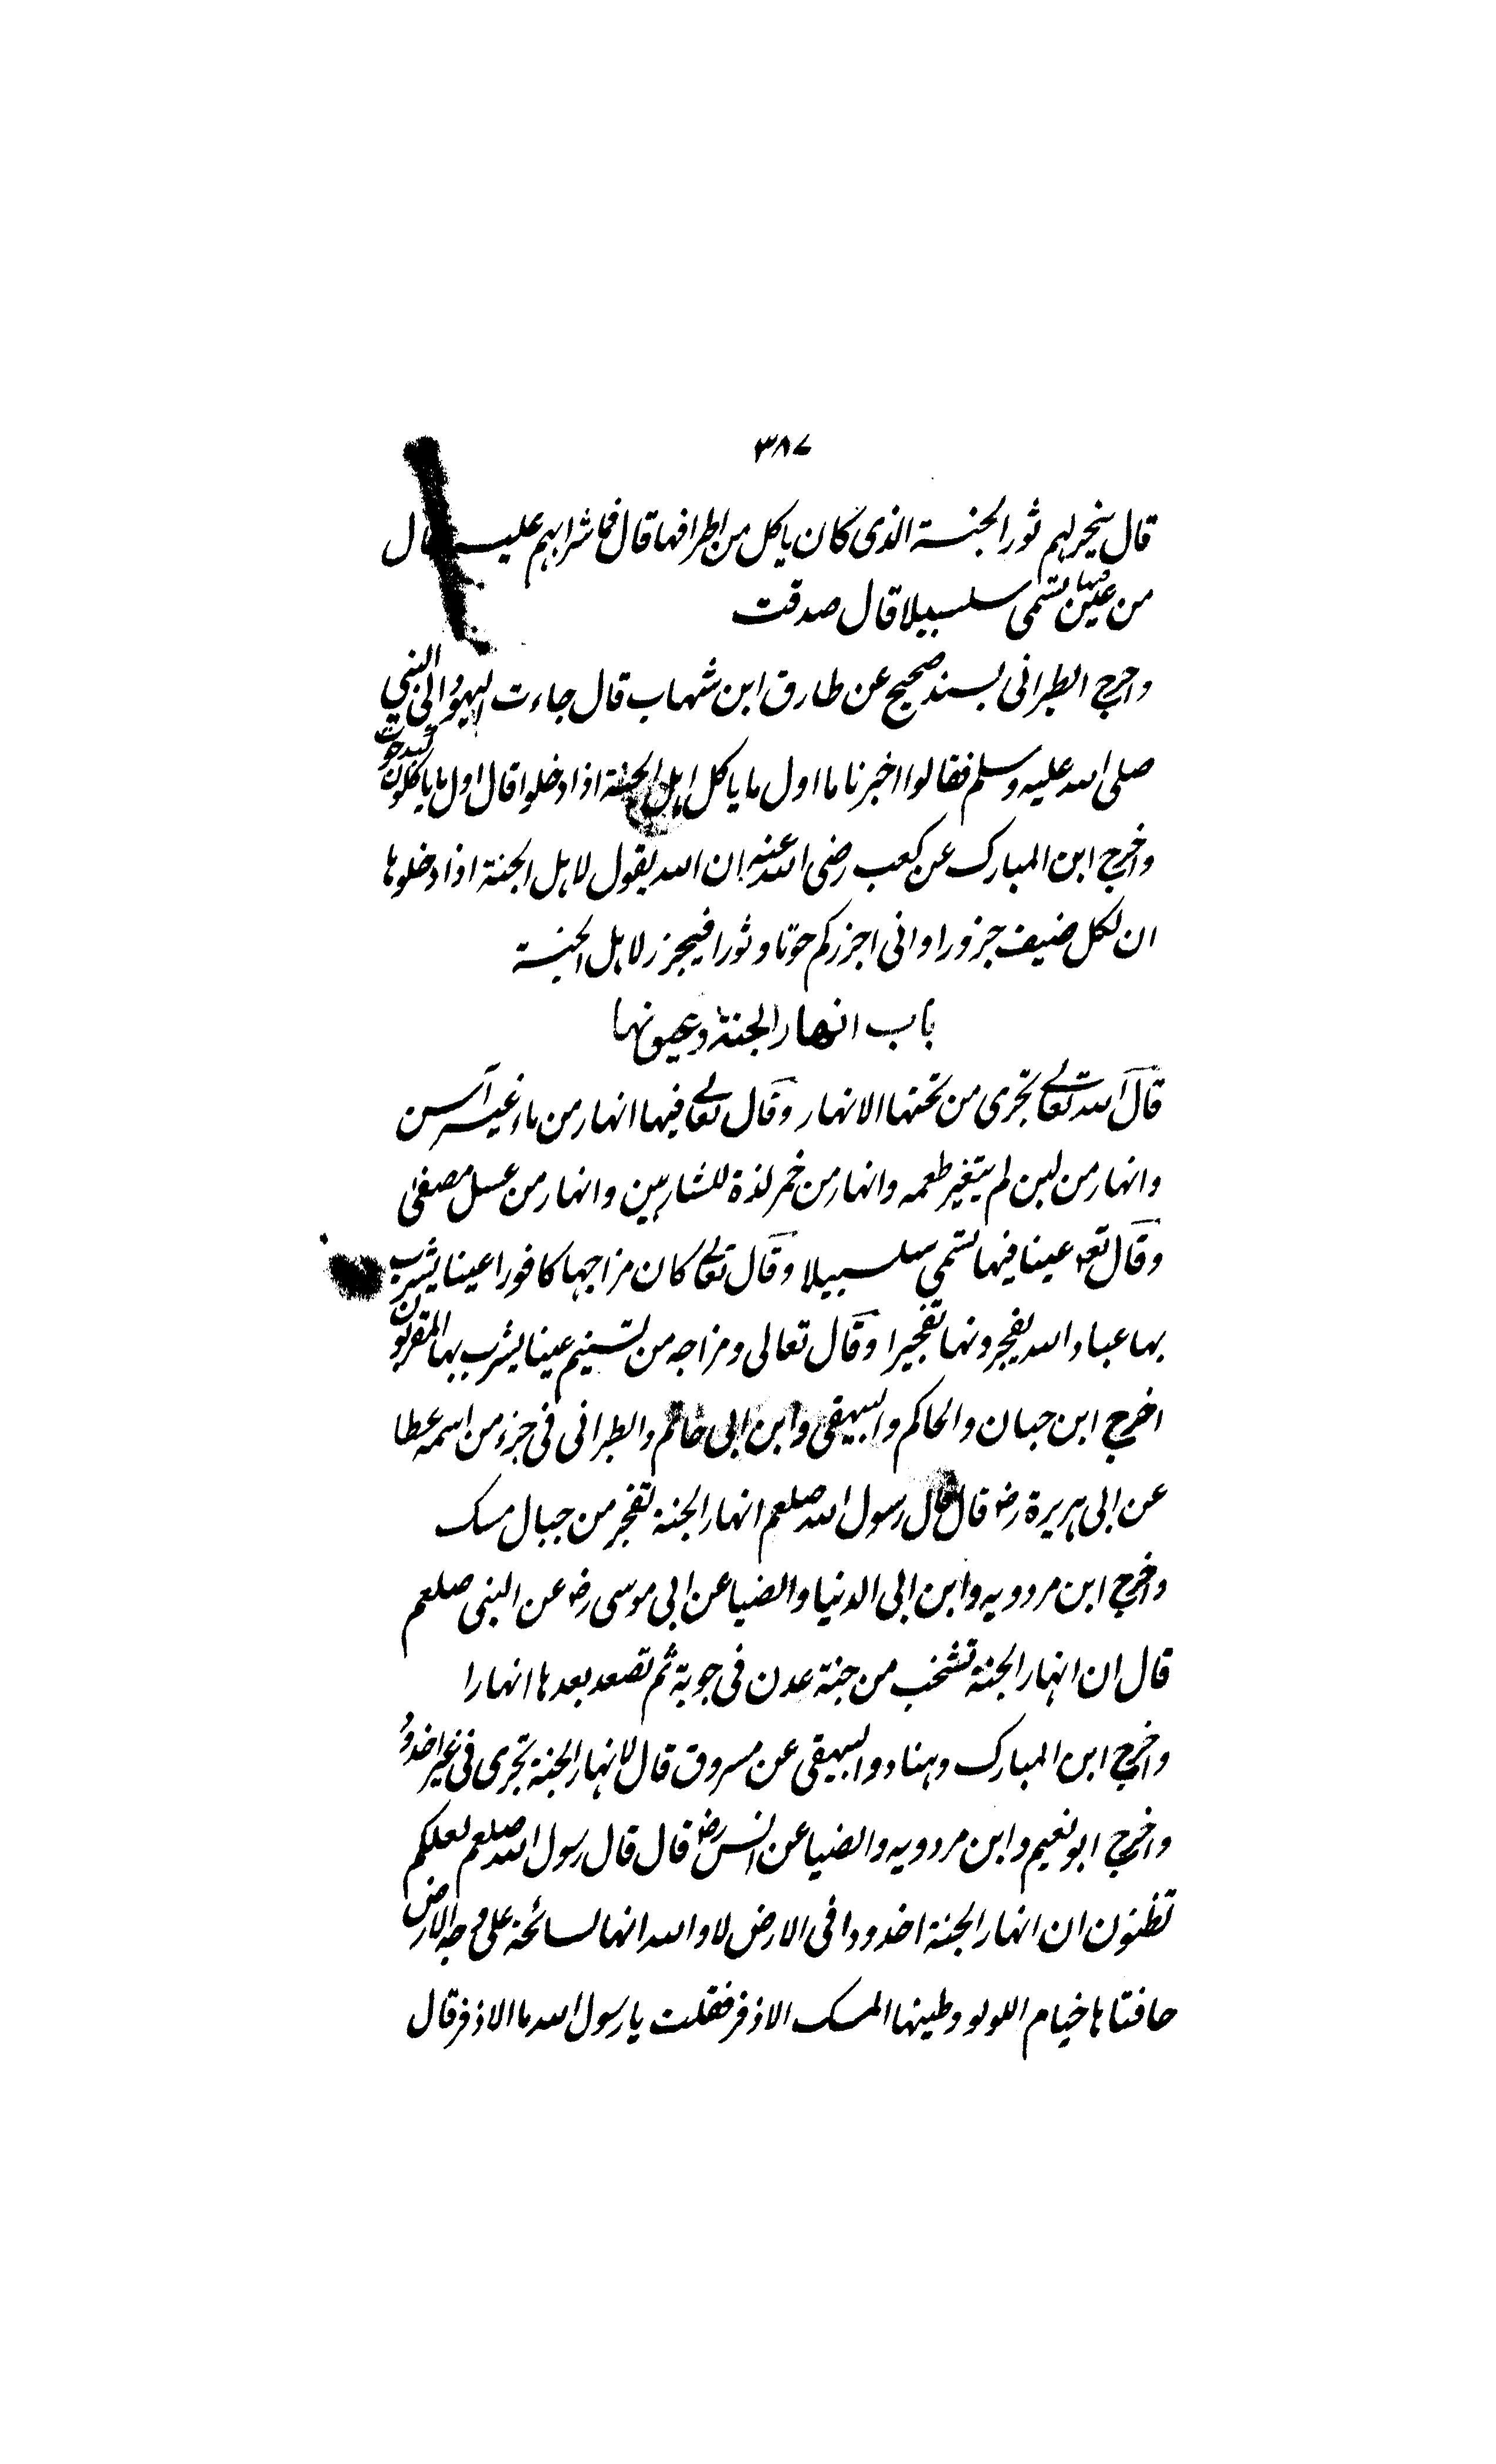 ٣٨٧
قال ينحر لهم ثور الجنة الذى كان ياكل من اطرافها قال فما شرابهم عليه قال
من عين فيها تسمى سلسبيلا قال صدقت
واخرج الطبرانى بسند صحيح عن طارق ابن شهاب قال جاءت اليهود الى النبي
صلى الله عليه وسلم فقالوا اخبرنا ما اول ما ياكل اهل الجنة اذا دخلوا قال اول ما ياكلون كبد حوت
واخرج ابن المبارك عن كعب رضى الله عنه ان الله يقول لاهل الجنة اذا دخلوها
ان لكل ضيف جزورا وانى اجزركم حوتا وثورا فيجزر لاهل الجنة
باب انهار الجنة وعيونها
قال الله تعالى تجرى من تحتها الانهار وقال تعالى فيها انهار من ماء غير آسن
وانهار من لبن لم يتغير طعمه وانهار من خمر لذة للشاربين وانهار من عسل مصفى
وقال تعه عينا فيها تسمى سلسبيلا وقال تعالى كان مزاجها كافورا عينا يشرب
بها عباد الله يفجرونها تفجيرا وقال تعالى ومزاجه من تسنيم عينا يشرب بها المقربون
اخرج ابن حبان والحاكم والبيهقى وابن ابى حاتم والطبرانى فى جزء من اسمه عطا
عن ابى هريرة رضه قال قال رسول الله صلعم انهار الجنة تفجر من جبال مسك
واخرج ابن مردويه وابن ابى الدنيا والضيا عن ابى موسى رضه عن النبى صلعم
قال ان انهار الجنة تشخب من جنة عدن فى جوبة ثم تصعد بعدها انهارا
واخرج ابن المبارك وهناد والبيهقى عن مسروق قال لانهار الجنة تجرى فى غير اخدود
واخرج ابو نعيم وابن مردويه والضيا عن انس رضه قال قال رسول الله صلعم لعلكم
تظنون ان انهار الجنة اخدودا فى الارض لا والله انها لسائحة على وجه الارض
حافتاها خيام اللولو وطينها المسك الاذفر فقلت يا رسول الله ما الاذفر قال